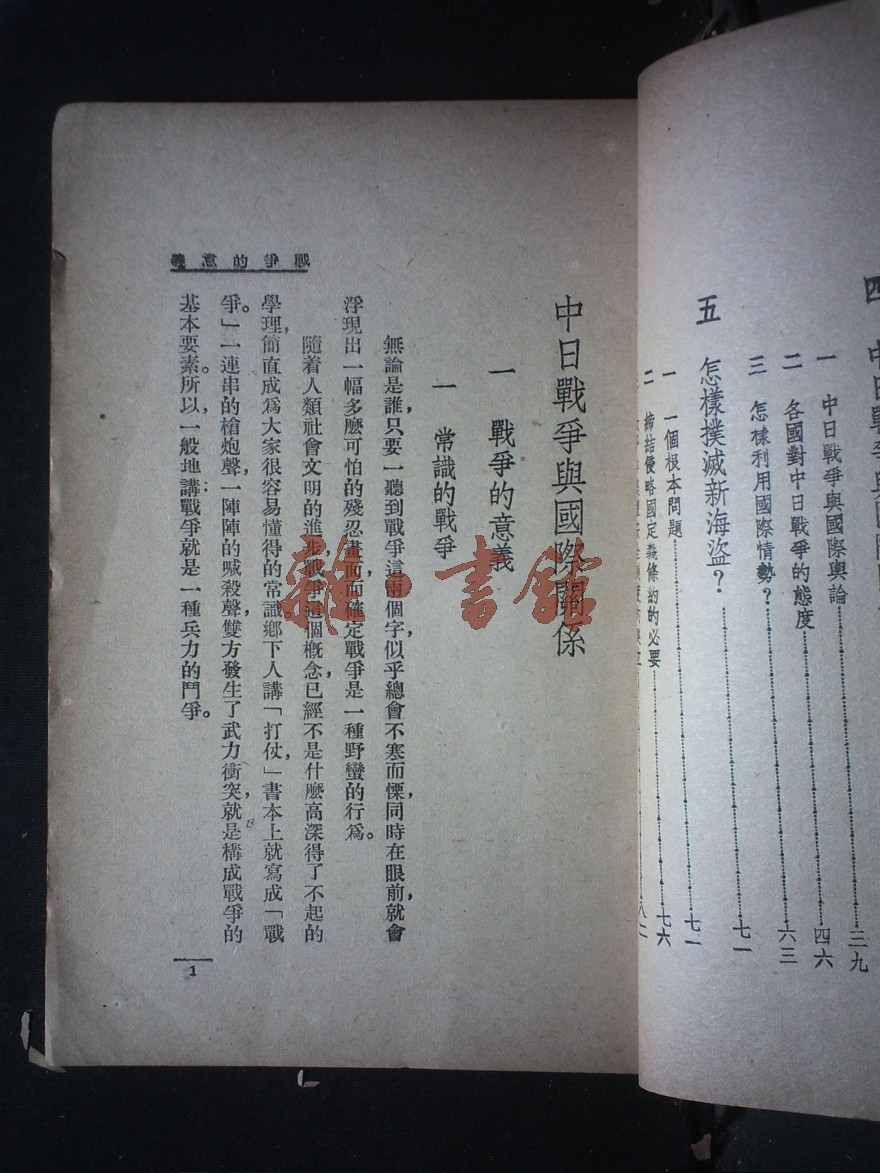 四 中日戰爭與國際
一 中日戰爭與國際輿論 三九
二 各國對中日戰爭的態度 四六
三 怎樣利用國際情勢？ 六三
五 怎樣撲滅新海盜？ 七一
一 一個根本問題 七一
二 締結侵略國定義條約的必要 七六
八二
中日戰爭與國際關係
一 戰爭的意義
一 常識的戰爭
無論是誰，只要一聽到戰爭這兩個字似乎總會不寒而慄，同時在眼前，就會
浮現出一幅多麽可怕的殘忍畫面，而確定戰爭是一種野蠻的行爲。
隨着人類社會文明的進步，戰爭這個概念，已經不是什麽高深得了不起的
學理，簡直成爲大家很容易懂得的常識鄉下人講「打仗，」書本上就寫成「戰
爭。」一連串的槍炮聲，一陣陣的喊殺聲，雙方發生了武力衝突，就是構成戰爭的
基本要素。所以，一般地講：戰爭就是一種兵力的鬥爭。
戰爭的意義
1
雜·書館